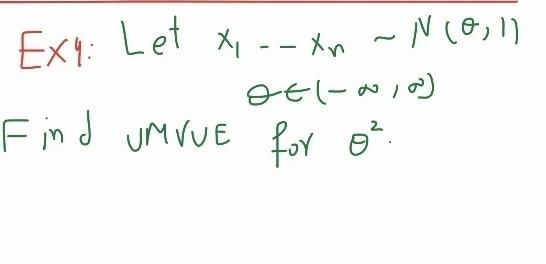 Ex4: Let x₁ -- xₙ ~ N(θ, 1)
θ ∈ (-∞, ∞)
Find UMVUE for θ².